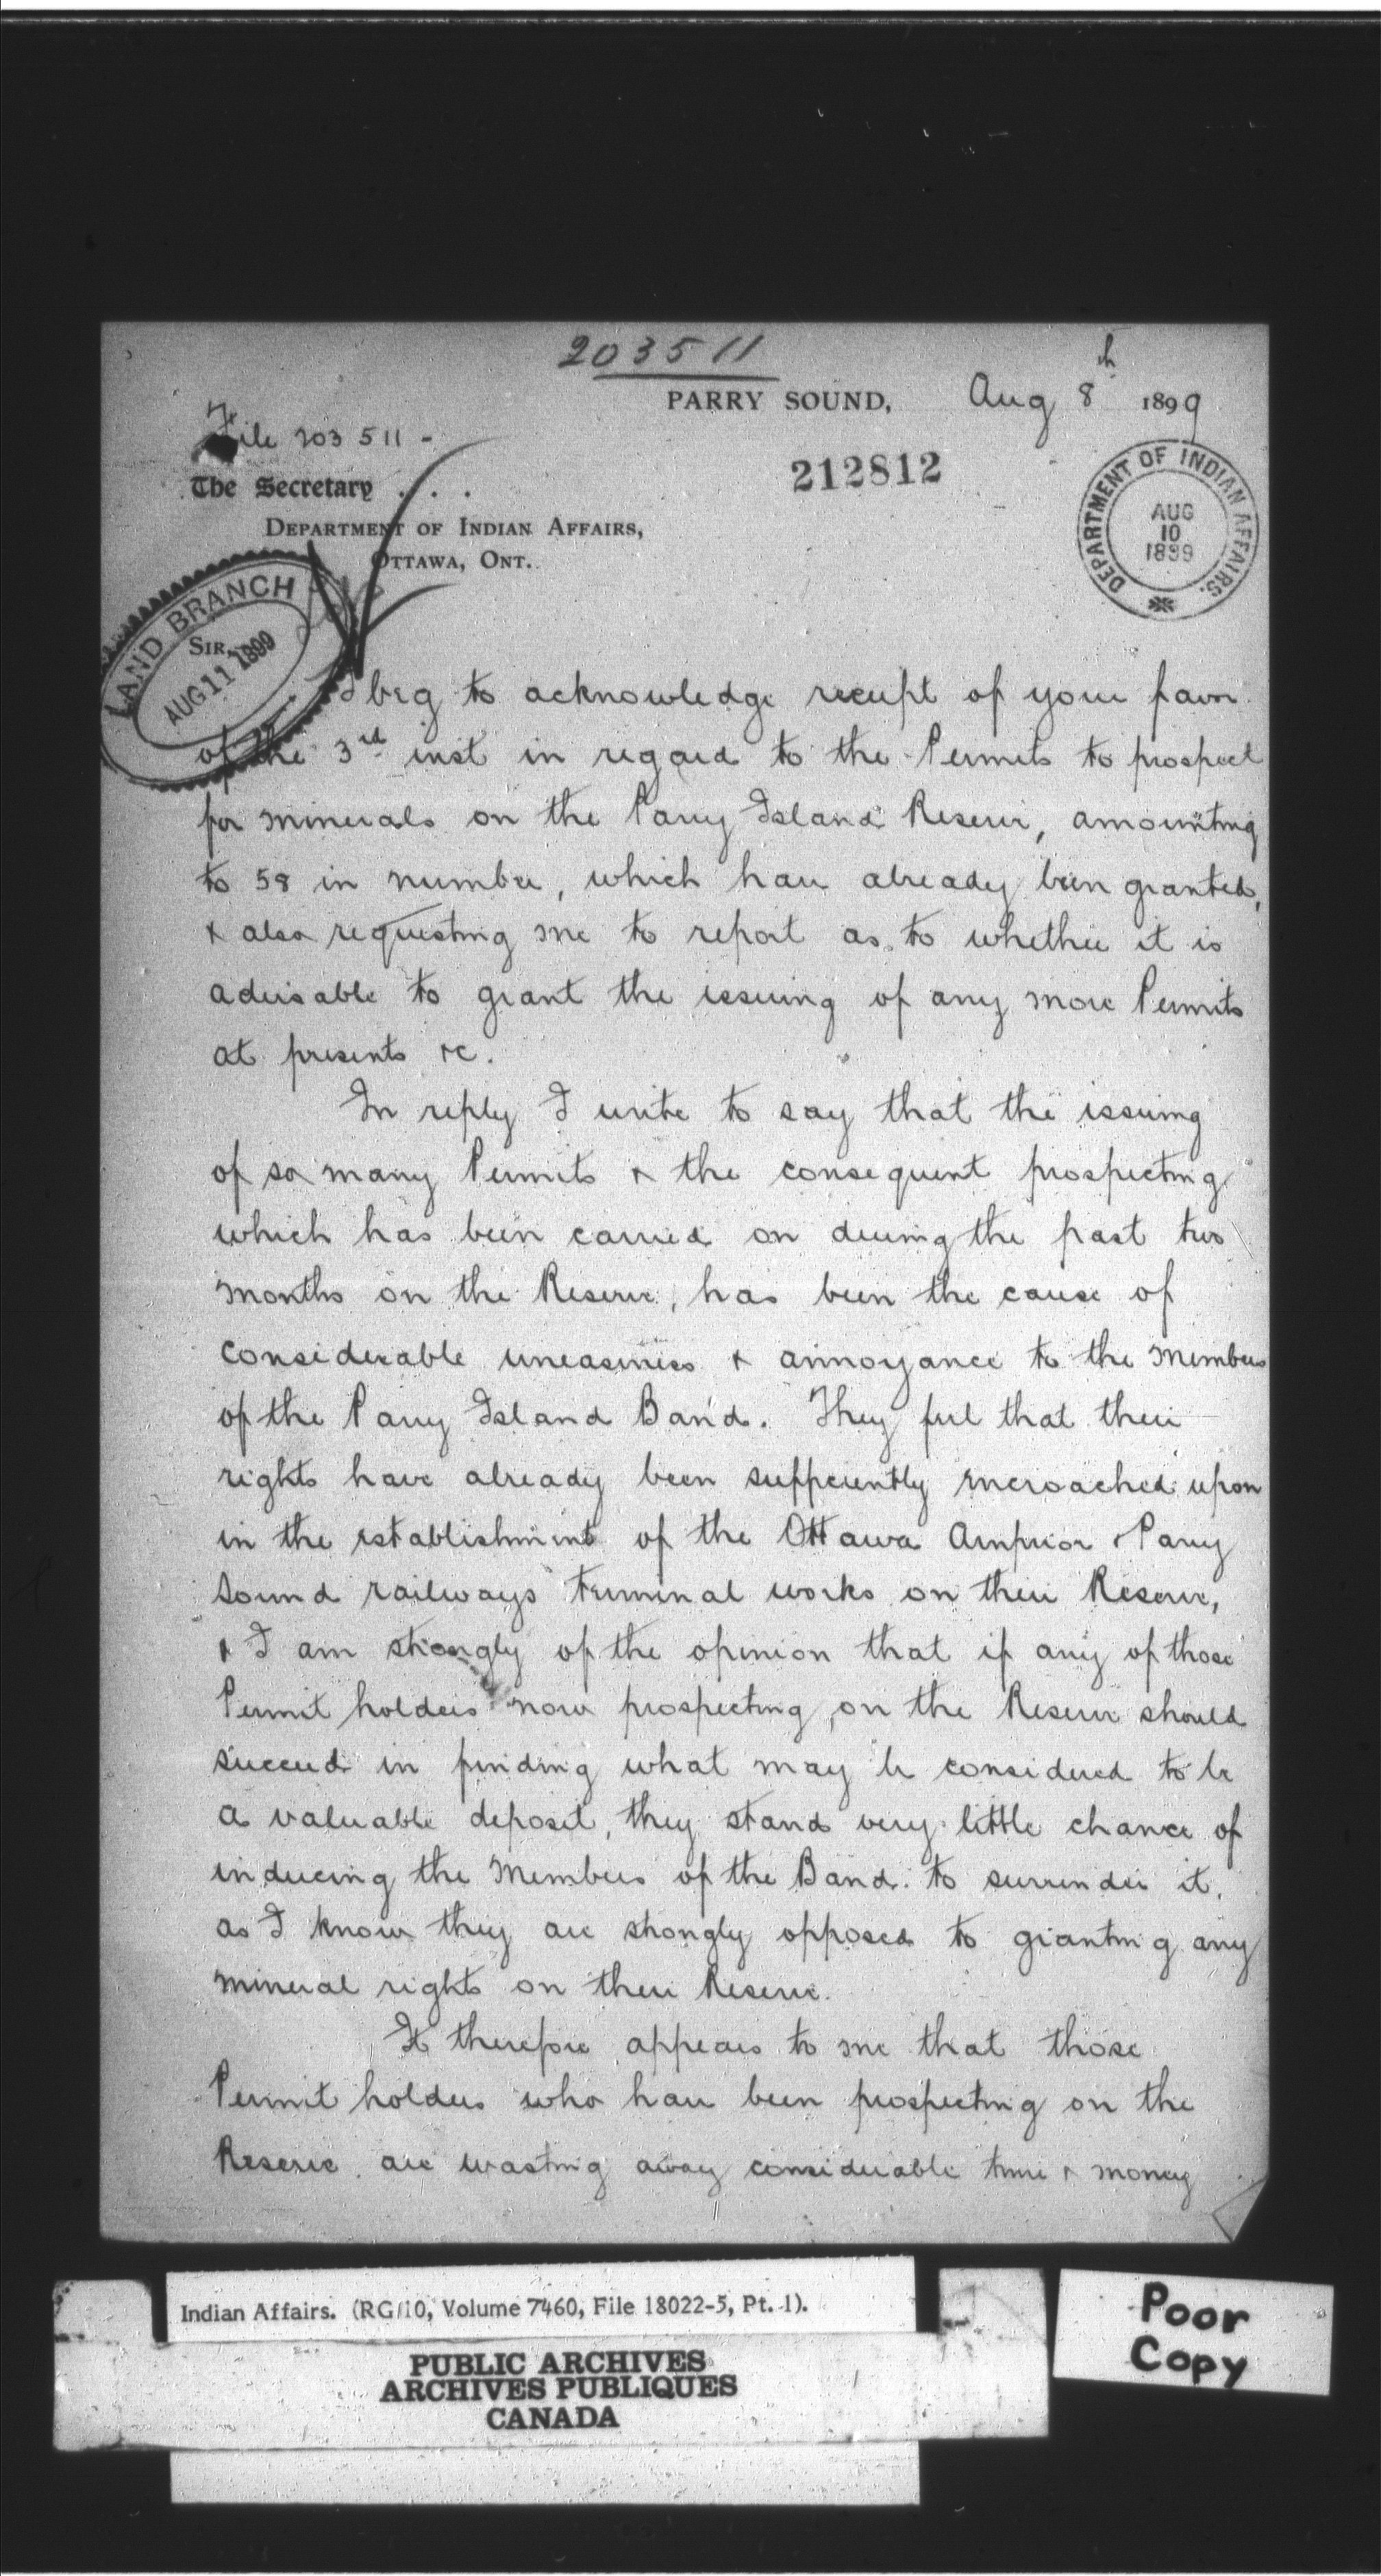 203511
PARRY SOUND, Aug 8th 1899
File 203511 -
212812
The Secretary . . .
DEPARTMENT OF INDIAN AFFAIRS,
OTTAWA, ONT.
DEPARTMENT OF INDIAN AFFAIRS.
AUG
10
1899
LAND BRANCH
AUG 11 1899
SIR,
I beg to acknowledge receipt of your favor
of the 3rd inst in regard to the Permits to prospect
for minerals on the Parry Island Reserve, amounting
to 58 in number, which have already been granted,
& also requesting me to report as to whether it is
advisable to grant the issuing of any more Permits
at presents &c.
In reply I write to say that the issuing
of so many Permits & the consequent prospecting
which has been carried on during the past two
months on the Reserve, has been the cause of
considerable uneasiness & annoyance to the members
of the Parry Island Band. They feel that their
rights have already been sufficiently encroached upon
in the establishment of the Ottawa Arnprior & Parry
Sound railways terminal works on their Reserve,
& I am strongly of the opinion that if any of those
Permit holders now prospecting on the Reserve should
succeed in finding what may be considered to be
a valuable deposit, they stand very little chance of
inducing the Members of the Band to surrender it,
as I know they are strongly opposed to granting any
mineral rights on their Reserve.
It therefore appears to me that those
Permit holders who have been prospecting on the
Reserve are wasting away considerable time & money
Indian Affairs. (RG 10, Volume 7460, File 18022-5, Pt. 1).
PUBLIC ARCHIVES
ARCHIVES PUBLIQUES
CANADA
Poor
Copy